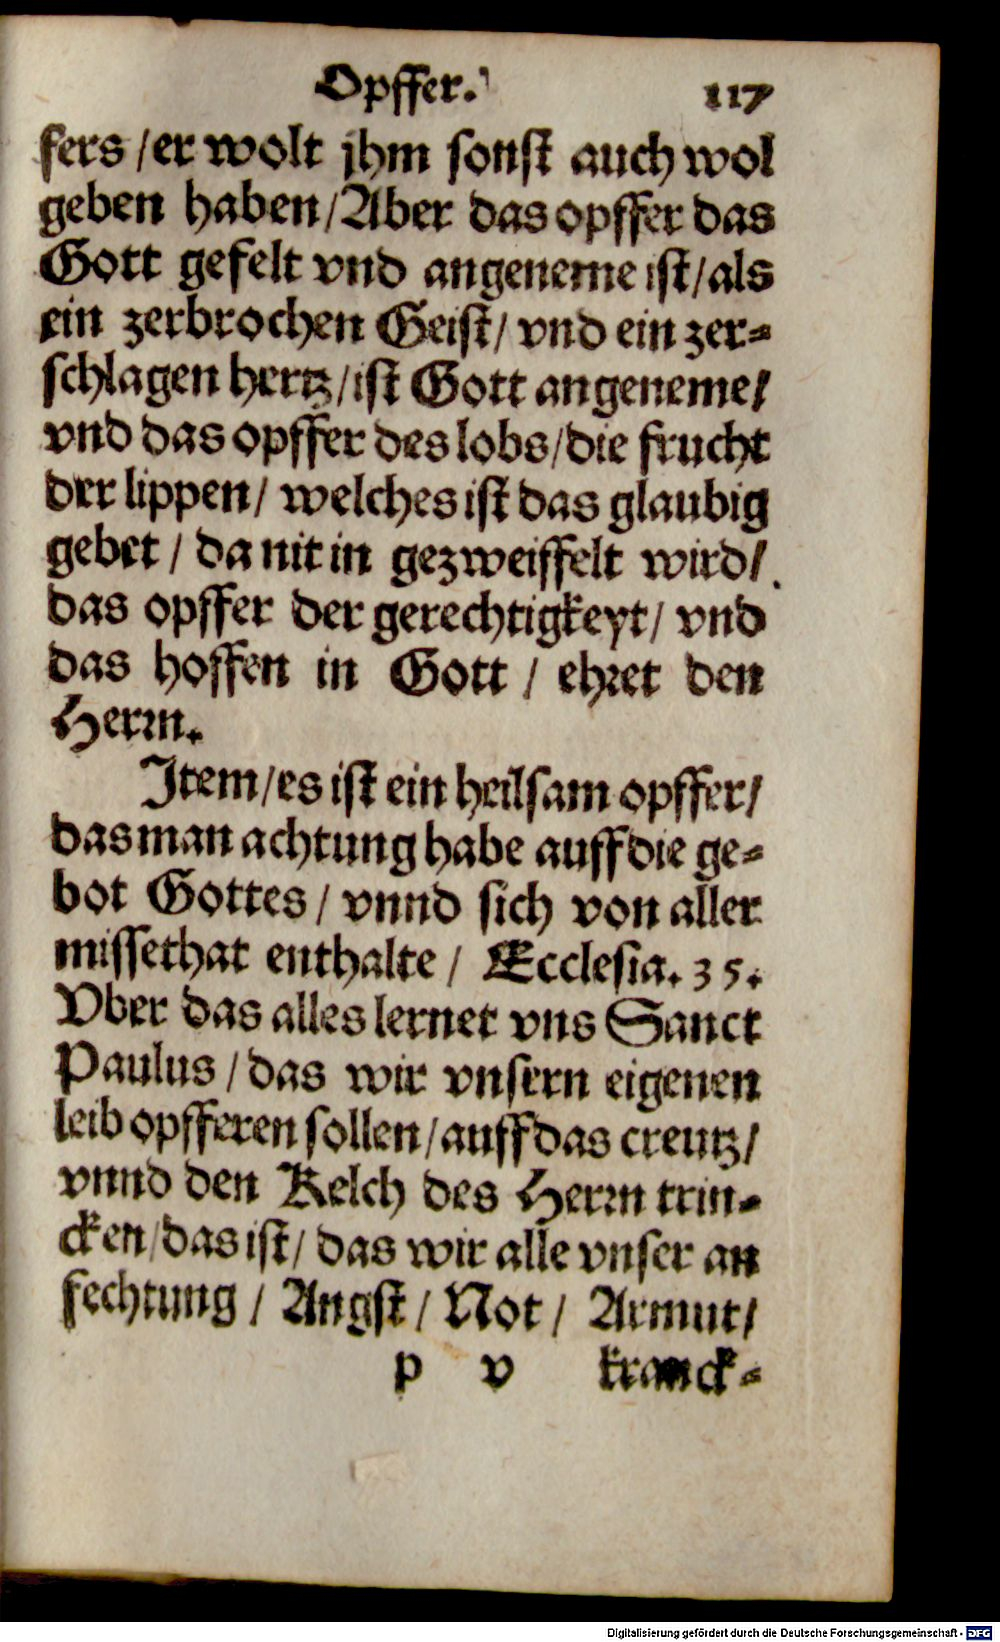 Opffer. 117
fers / er wolt jhm sonst auch wol
geben haben / Aber das opffer das
Gott gefelt vnd angeneme ist / als
ein zerbrochen Geist / vnd ein zer-
schlagen hertz / ist Gott angeneme /
vnd das opffer des lobs / die frucht
der lippen / welches ist das glaubig
gebet / da nit in gezweiffelt wird /
das opffer der gerechtigkeyt / vnd
das hoffen in Gott / ehret den
Herrn.
Item / es ist ein heilsam opffer /
das man achtung habe auff die ge-
bot Gottes / vnnd sich von aller
missethat enthalte / Ecclesia. 35.
Vber das alles lernet vns Sanct
Paulus / das wir vnsern eigenen
leib opfferen sollen / auff das creutz /
vnnd den Kelch des Herrn trin-
cken / das ist / das wir alle vnser an
fechtung / Angst / Not / Armut /
p v kranck-
Digitalisierung gefördert durch die Deutsche Forschungsgemeinschaft - DFG